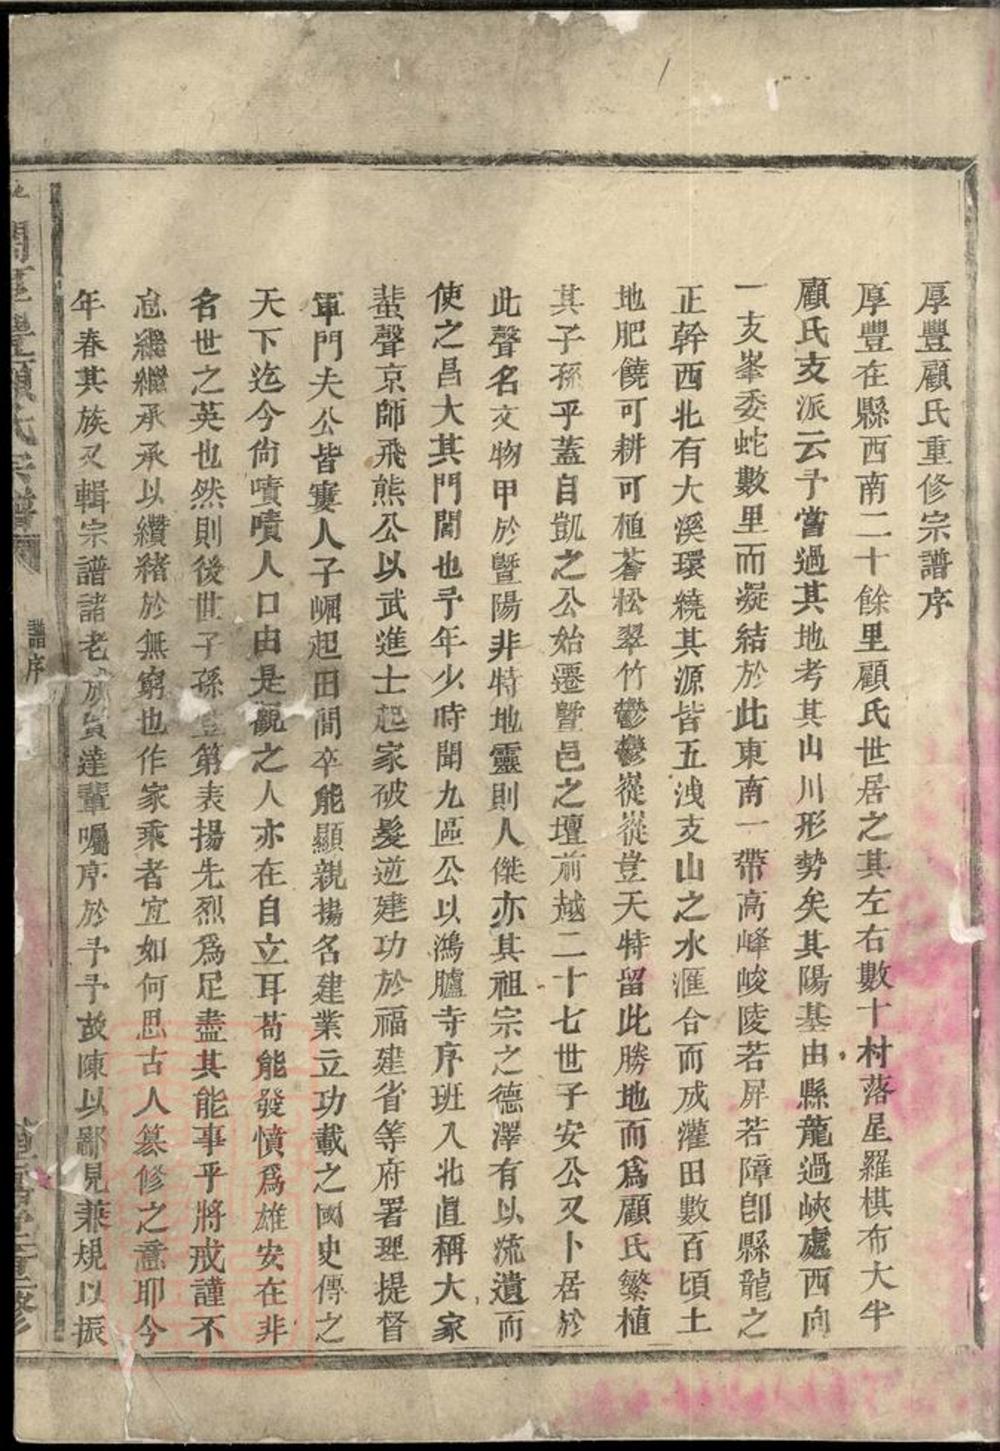 厚豐顧氏重修宗譜序
厚豐在縣西南二十餘里顧氏世居之其左右數十村落星羅棋布大半
顧氏支派云予嘗過其地考其山川形勢矣其陽基由縣龍過峽處西向
一支峯委蛇數里而凝結於此東南一帶高峰峻陵若屏若障卽縣龍之
正幹西北有大溪環繞其源皆五洩支山之水滙合而成灌田數百頃土
地肥饒可耕可植蒼松翠竹鬱鬱蓯蓯豈天特留此勝地而爲顧氏繁植
其子孫乎蓋自凱之公始遷暨邑之壇前越二十七世子安公又卜居於
此聲名文物甲於暨陽非特地靈則人傑亦其祖宗之德澤有以流遺而
使之昌大其門閭也予年少時聞九區公以鴻臚寺序班入北直稱大家
蜚聲京師飛熊公以武進士起家破髮逆建功於福建省等府署理提督
軍門夫公皆寠人子崛起田間卒能顯親揚名建業立功載之國史傳之
天下迄今尙嘖嘖人口由是觀之人亦在自立耳苟能發憤爲雄安在非
名世之英也然則後世子孫豈第表揚先烈爲足盡其能事乎將戒謹不
怠繼繼承承以纘緒於無窮也作家乘者宜如何思古人篡修之意耶今
年春其族又輯宗譜諸老成賢達輩囑序於予予故陳以鄙見兼規以振
豐顧氏宗譜
譜序
重修